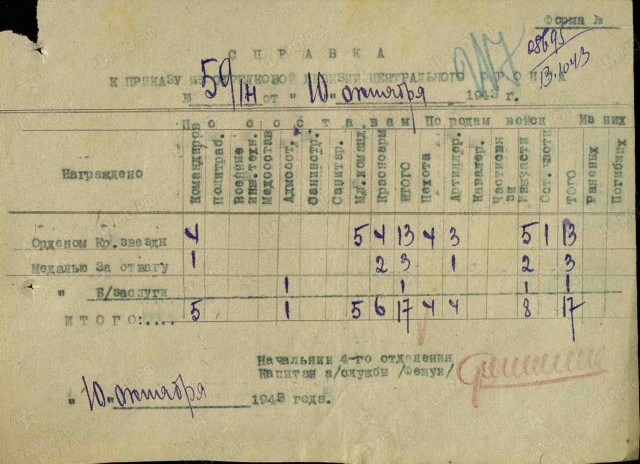 Форма №
28695
13.10.43
СПРАВКА
К ПРИКАЗУ СТРЕЛКОВОЙ ДИВИЗИИ ЦЕНТРАЛЬНОГО
№ 59/Н от "10" октября 1943 г.
По составам По родам войск Из них
Награждено
Командиров
Политраб.
Военные инж.техн.
Медсостав
Админст.
Санитар.
Мл.команд
Красноарм
ИТОГО
Пехота
Артиллер.
Кавалер.
Частисвязи
Ост.части
ТОГО
Раненых
Погибших
Орденом Кр.звезды 4 5 4 13 4 3 5 1 13
Медалью За отвагу 1 2 3 1 2 3
" Б/заслуги 1 1 1 1
ИТОГО:.... 5 1 5 6 17 4 4 8 17
Начальник 4-го отделения
Капитан а/службы
"10" октября 1943 года.